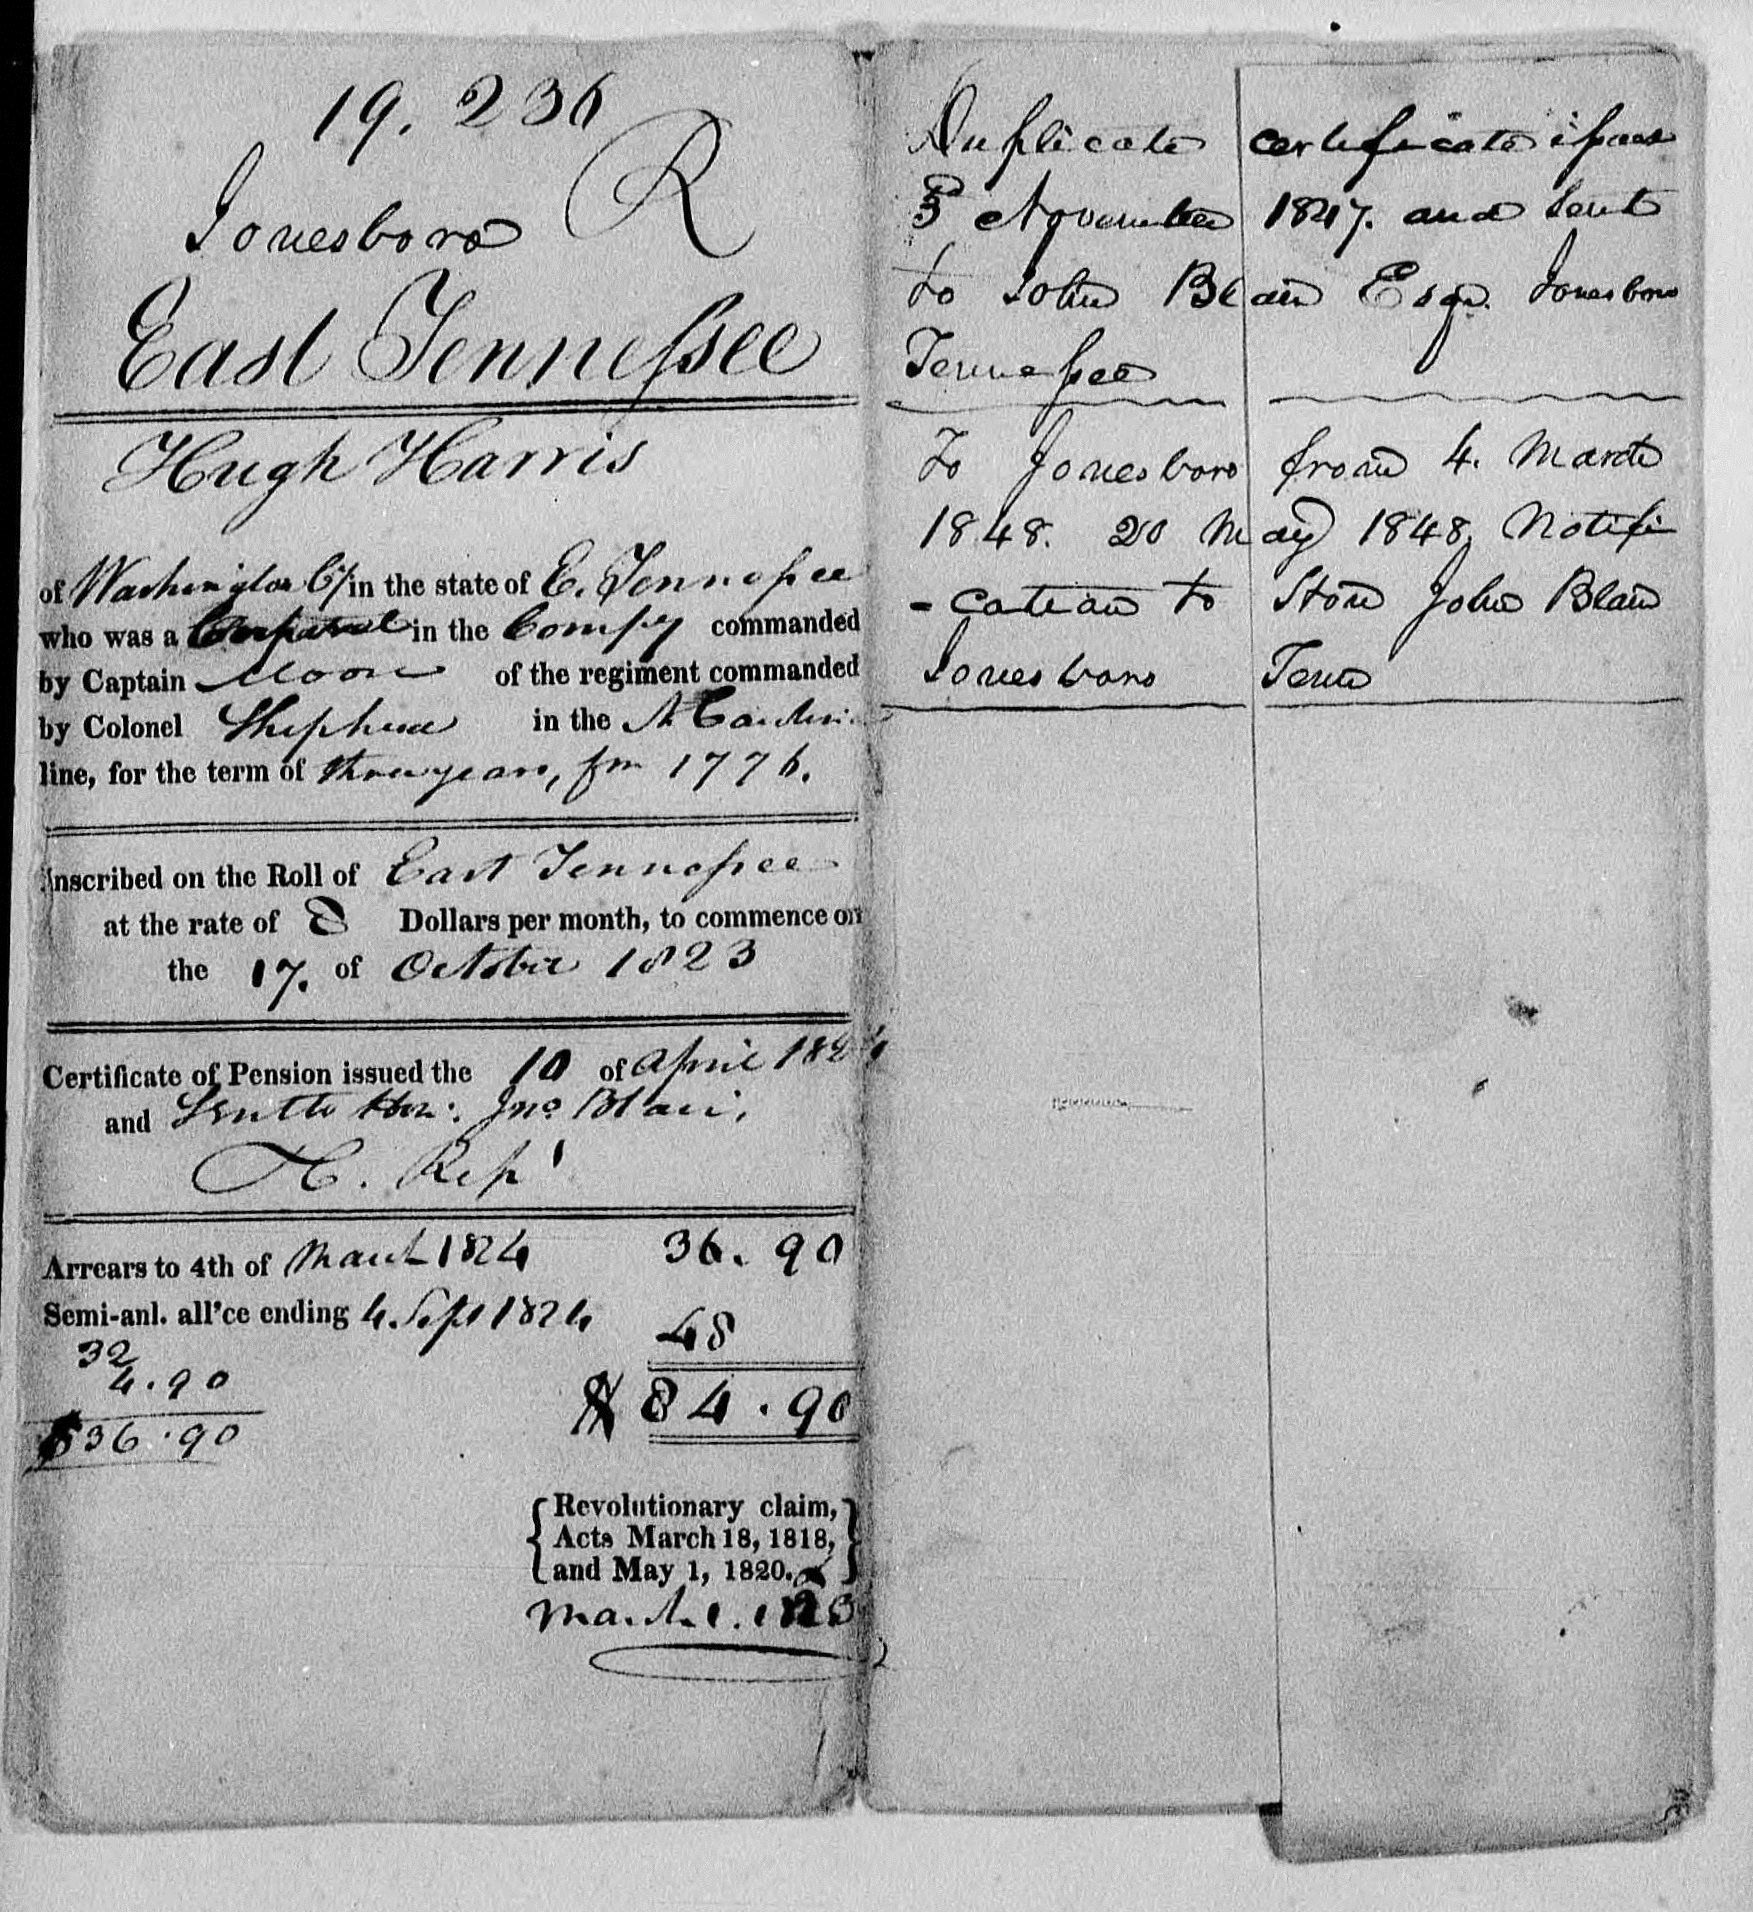 19.236
Jonesboro R
East Tennessee
Hugh Harris
of Washington Cy in the state of E. Tennessee
who was a Corporal in the Compy commanded
by Captain Moore of the regiment commanded
by Colonel Shephard in the N Carolina
line, for the term of three years, fm 1776.
Inscribed on the Roll of East Tennessee
at the rate of 8 Dollars per month, to commence on
the 17. of October 1823
Certificate of Pension issued the 10 of April 1824
and Sent to Hon: Jno Blair,
H. Rep
Arrears to 4th of March 1824 36.90
Semi-anl. all'ce ending 4 Sept 1824 48
32
4.90
$ 84.90
$36.90
{ Revolutionary claim,
Acts March 18, 1818,
and May 1, 1820. & }
March 1. 1823
Duplicate certificate issued
3d November 1847. and sent
to John Blair Esqr. Jonesboro
Tennessee
To Jonesboro from 4. March
1848. 20 May 1848, Notifi
-cation to Hon John Blair
Jonesboro Tenn